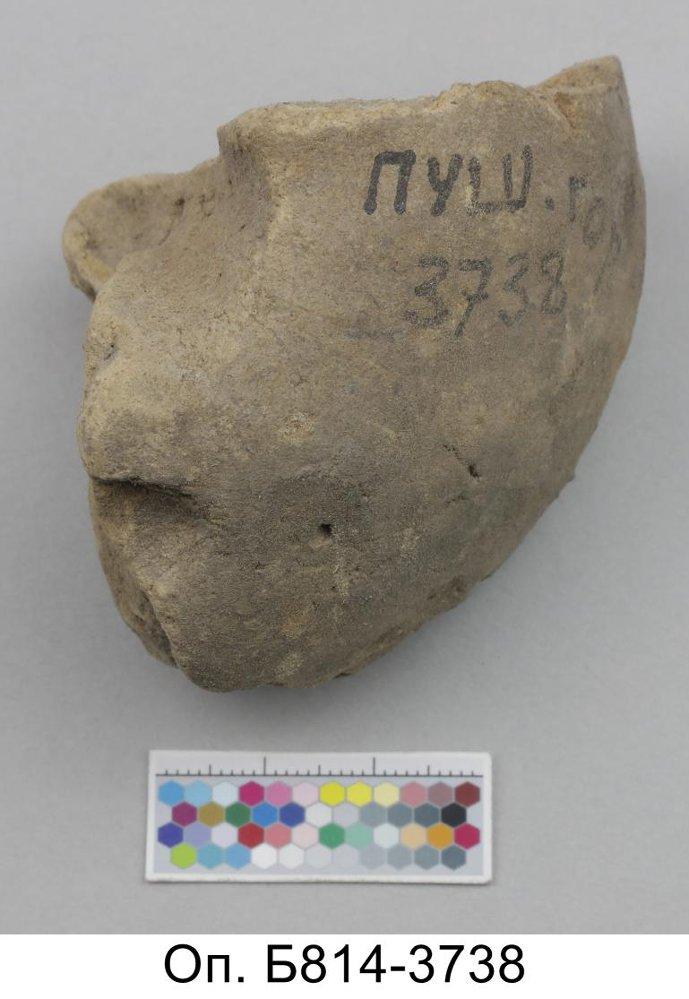 ПУШ. гор
3738
Оп. Б814-3738